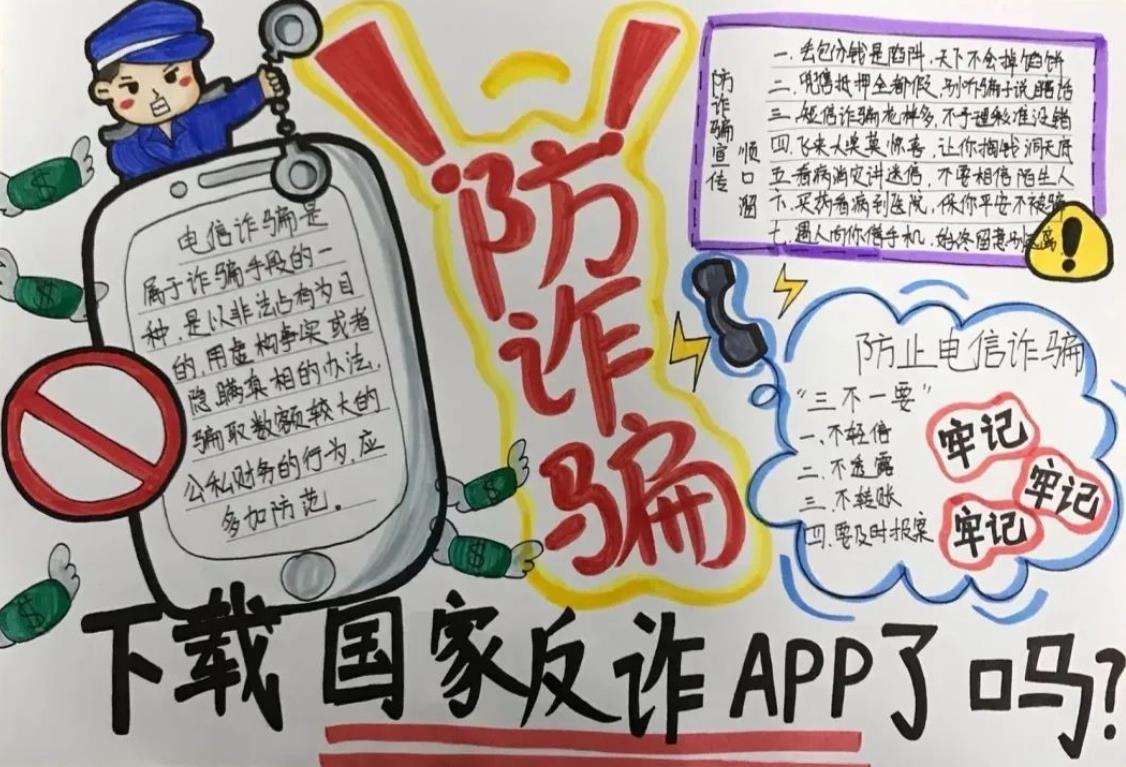 防诈骗
电信诈骗是
属于诈骗手段的一
种,是以非法占有为目
的,用虚构事实或者
隐瞒真相的办法,
骗取数额较大的
公私财务的行为,应
多加防范。
防诈骗宣传
顺口溜
一、丢包分钱是陷阱,天下不会掉馅饼
二、抵押全都假,别听骗子说瞎话
三、短信诈骗花样多,不予理睬准没错
四、飞来大奖莫惊喜,让你掏钱洞
五、看病消灾讲迷信,不要相信陌生人
买药看病到医院,保你平安不被骗
遇人向你借手机,始终留意别
防止电信诈骗
“三不一要”
一、不轻信
二、不透露
三、不转账
四、要及时报案
牢记
牢记
牢记
下载国家反诈APP了吗?